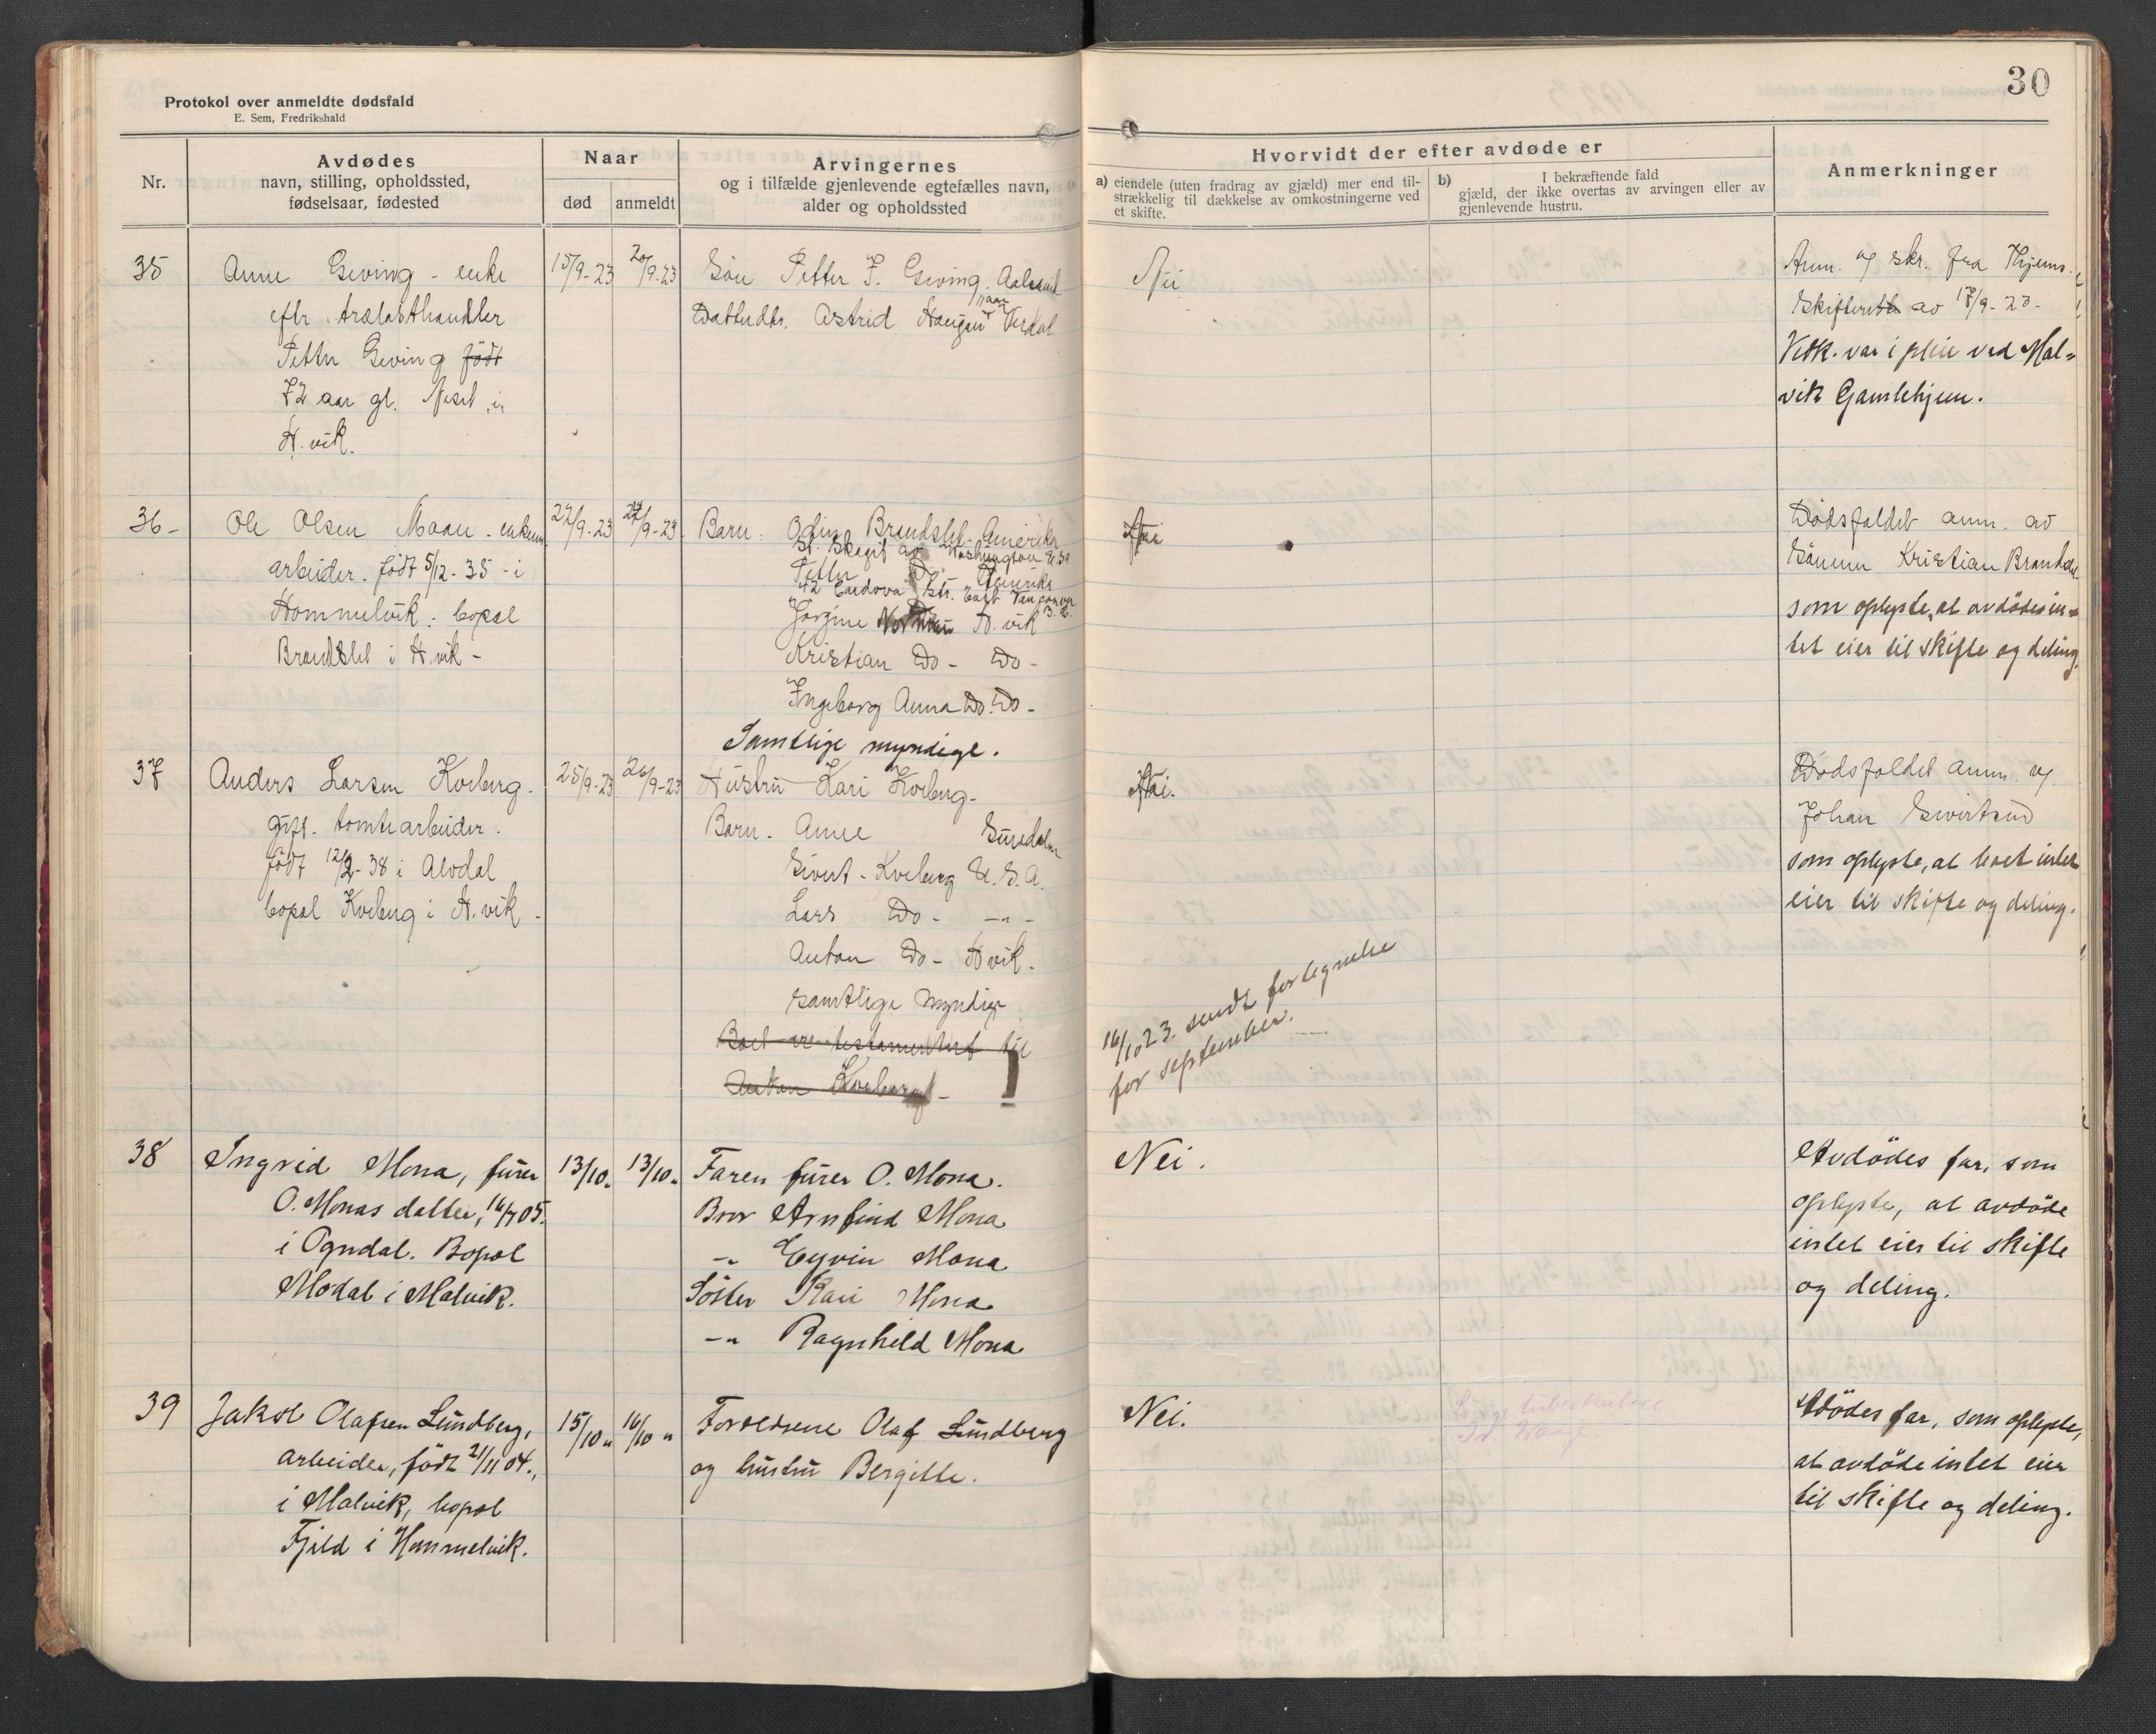 Protokol over anmeldte dødsfald
E. Sem, Fredrikshald
Nr.
Avdødes
navn, stilling, opholdssted,
fødselsaar, fødested
Naar
død
anmeldt
Arvingernes
og i tilfælde gjenlevende egtefælles navn,
alder og opholdssted
35
Anne Geving - enke
eftr. trælasthandler
Petter Geving født
72 aar gl. i
H.vik.
15/9-23
20/9-23
Søn Petter J. Geving.
Datterdtr. Astrid Haugan Verdal
36-
Ole Olsen Moan. enkem.
arbeider. født 5/12-35 - i
Hommelvik. bopæl
Brandslet i H.vik -
22/9-23
24/9-23.
Barn: Odin Brandslet. Amerika
St. Skagit av Washington U.S.A
Petter Do. Amerika
42 Cordova Str. East Vancouver
B.C.
Jørgine H.vik
Kristian Do - Do -
Ingeborg Anna Do. Do -
Samtlige myndige.
37
Anders Larsen Kveberg.
gift. tomtearbeider.
født 12/2-38 i Alvdal
bopæl Kveberg i H.vik -
25/9-23
26/9-23
Hustru Kari Kveberg.
Barn. Anne
Sivert - Kveberg U.S.A.
Lars Do - -"-
Anton Do - H.vik.
samtlige myndige
Boet er testamentert til
Anton Kveberg -
38
Ingrid Mona, fürer
O. Monas datter, 16/7 05.
i Ogndal. Bopæl
Modal i Malvik.
13/10.
13/10.
Faren fürer O. Mona.
Bror Arnfind Mona
-" Eyvin Mona
Söster Kari Mona
-" Ragnhild Mona
39
Jakob Olafsen Lundberg,
arbeider, född 21/11 04.,
i Malvik, bopæl
Fjeld i Hommelvik.
15/10 "
16/10 "
Forældrene Olaf Lundberg
og hustru Bergitte.
30
Hvorvidt der efter avdøde er
a) eiendele (uten fradrag av gjæld) mer end til-
strækkelig til dækkelse av omkostningerne ved
et skifte.
b) I bekræftende fald
gjæld, der ikke overtas av arvingen eller av
gjenlevende hustru.
Anmerkninger
Nei
Anm. og skr. fra Hjems.
skifteret av 17/9-23-
Vedk. var i pleie ved Mal-
vik Gamlehjem.
Nei
Dødsfaldet anm. av
sønnen Kristian Brandslet.
som oplyste, at avdøde in-
tet eier til skifte og deling.
Nei.
Dødsfaldet anm. og
Johan Sivertsen
som oplyste, at boet intet
eier til skifte og deling.
16/10 23. sendt fortegnelse
for september.
Nei.
Avdödes far, som
oplyste, at avdöde
intet eier til skifte
og deling.
Nei.
Adödes far, som oplyste,
at avdöde intet eier
til skifte og deling.